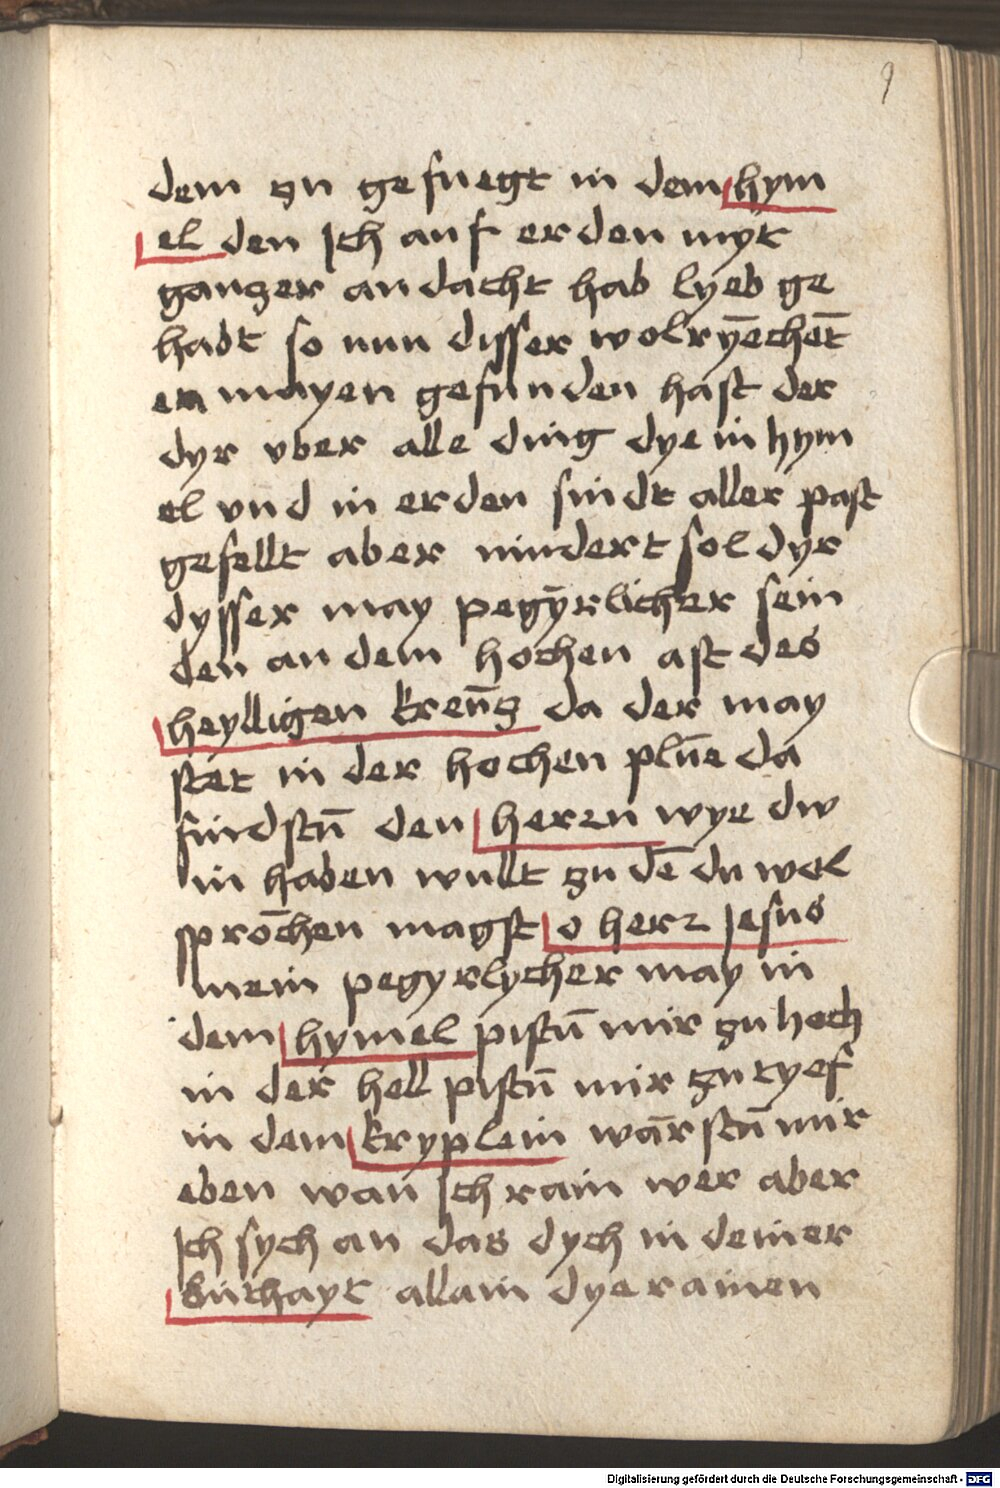 9
dem zu gefuegt in dem hym
el den Ich auf erden myt
ganzer andacht hab lyeb ge
habt so nun disser wolrÿēchēt
en mayen gefunden hast der
dyr vber alle ding dye in hym
el vnd in erden sindt aller past
gefellt aber nindert sol dyr
dysser may pegȳrlicher sein
den an dem hochen ast des
heylligen kreūz da der may
stet in der hochen plūe da
findstū den herrn wye dw
in haben wullt zu dē du wol
sprōchen magst o herr Jesus
mein pegyrlycher may in
dem hymel pistū mir zu hoch
in der hell pistū mir zu tyef
in dem kryplein wār stū mir
eben wan Ich rain wer aber
Ich sych an das dych in deiner
kinthayt allain dye rainen
Digitalisierung gefördert durch die Deutsche Forschungsgemeinschaft - DFG